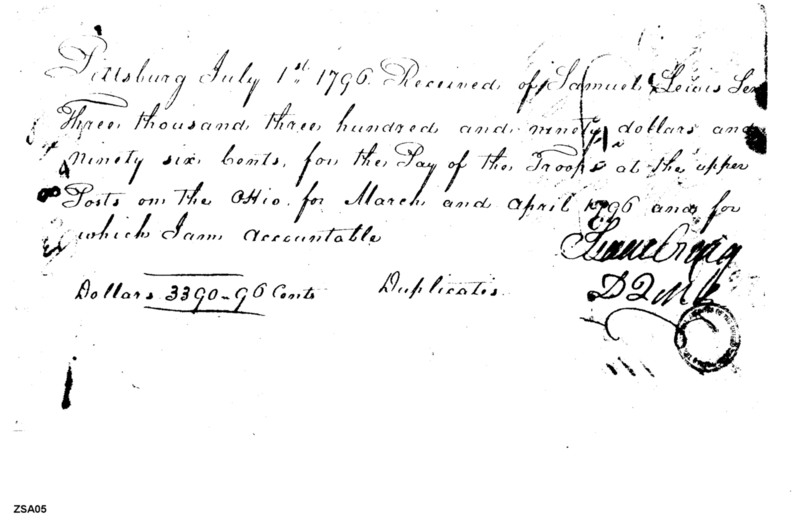 Pittsburg July 1st 1796. Received of Samuel Lewis Sen
Three thousand three hundred and ninety dollars and
ninety six Cents, for the Pay of the Troops at the upper
Posts on the Ohio for March and April 1796 and for
which I am accountable
Isaac Craig
Dollars 3390-96 Cents Duplicates
D Q M G
ZSA05